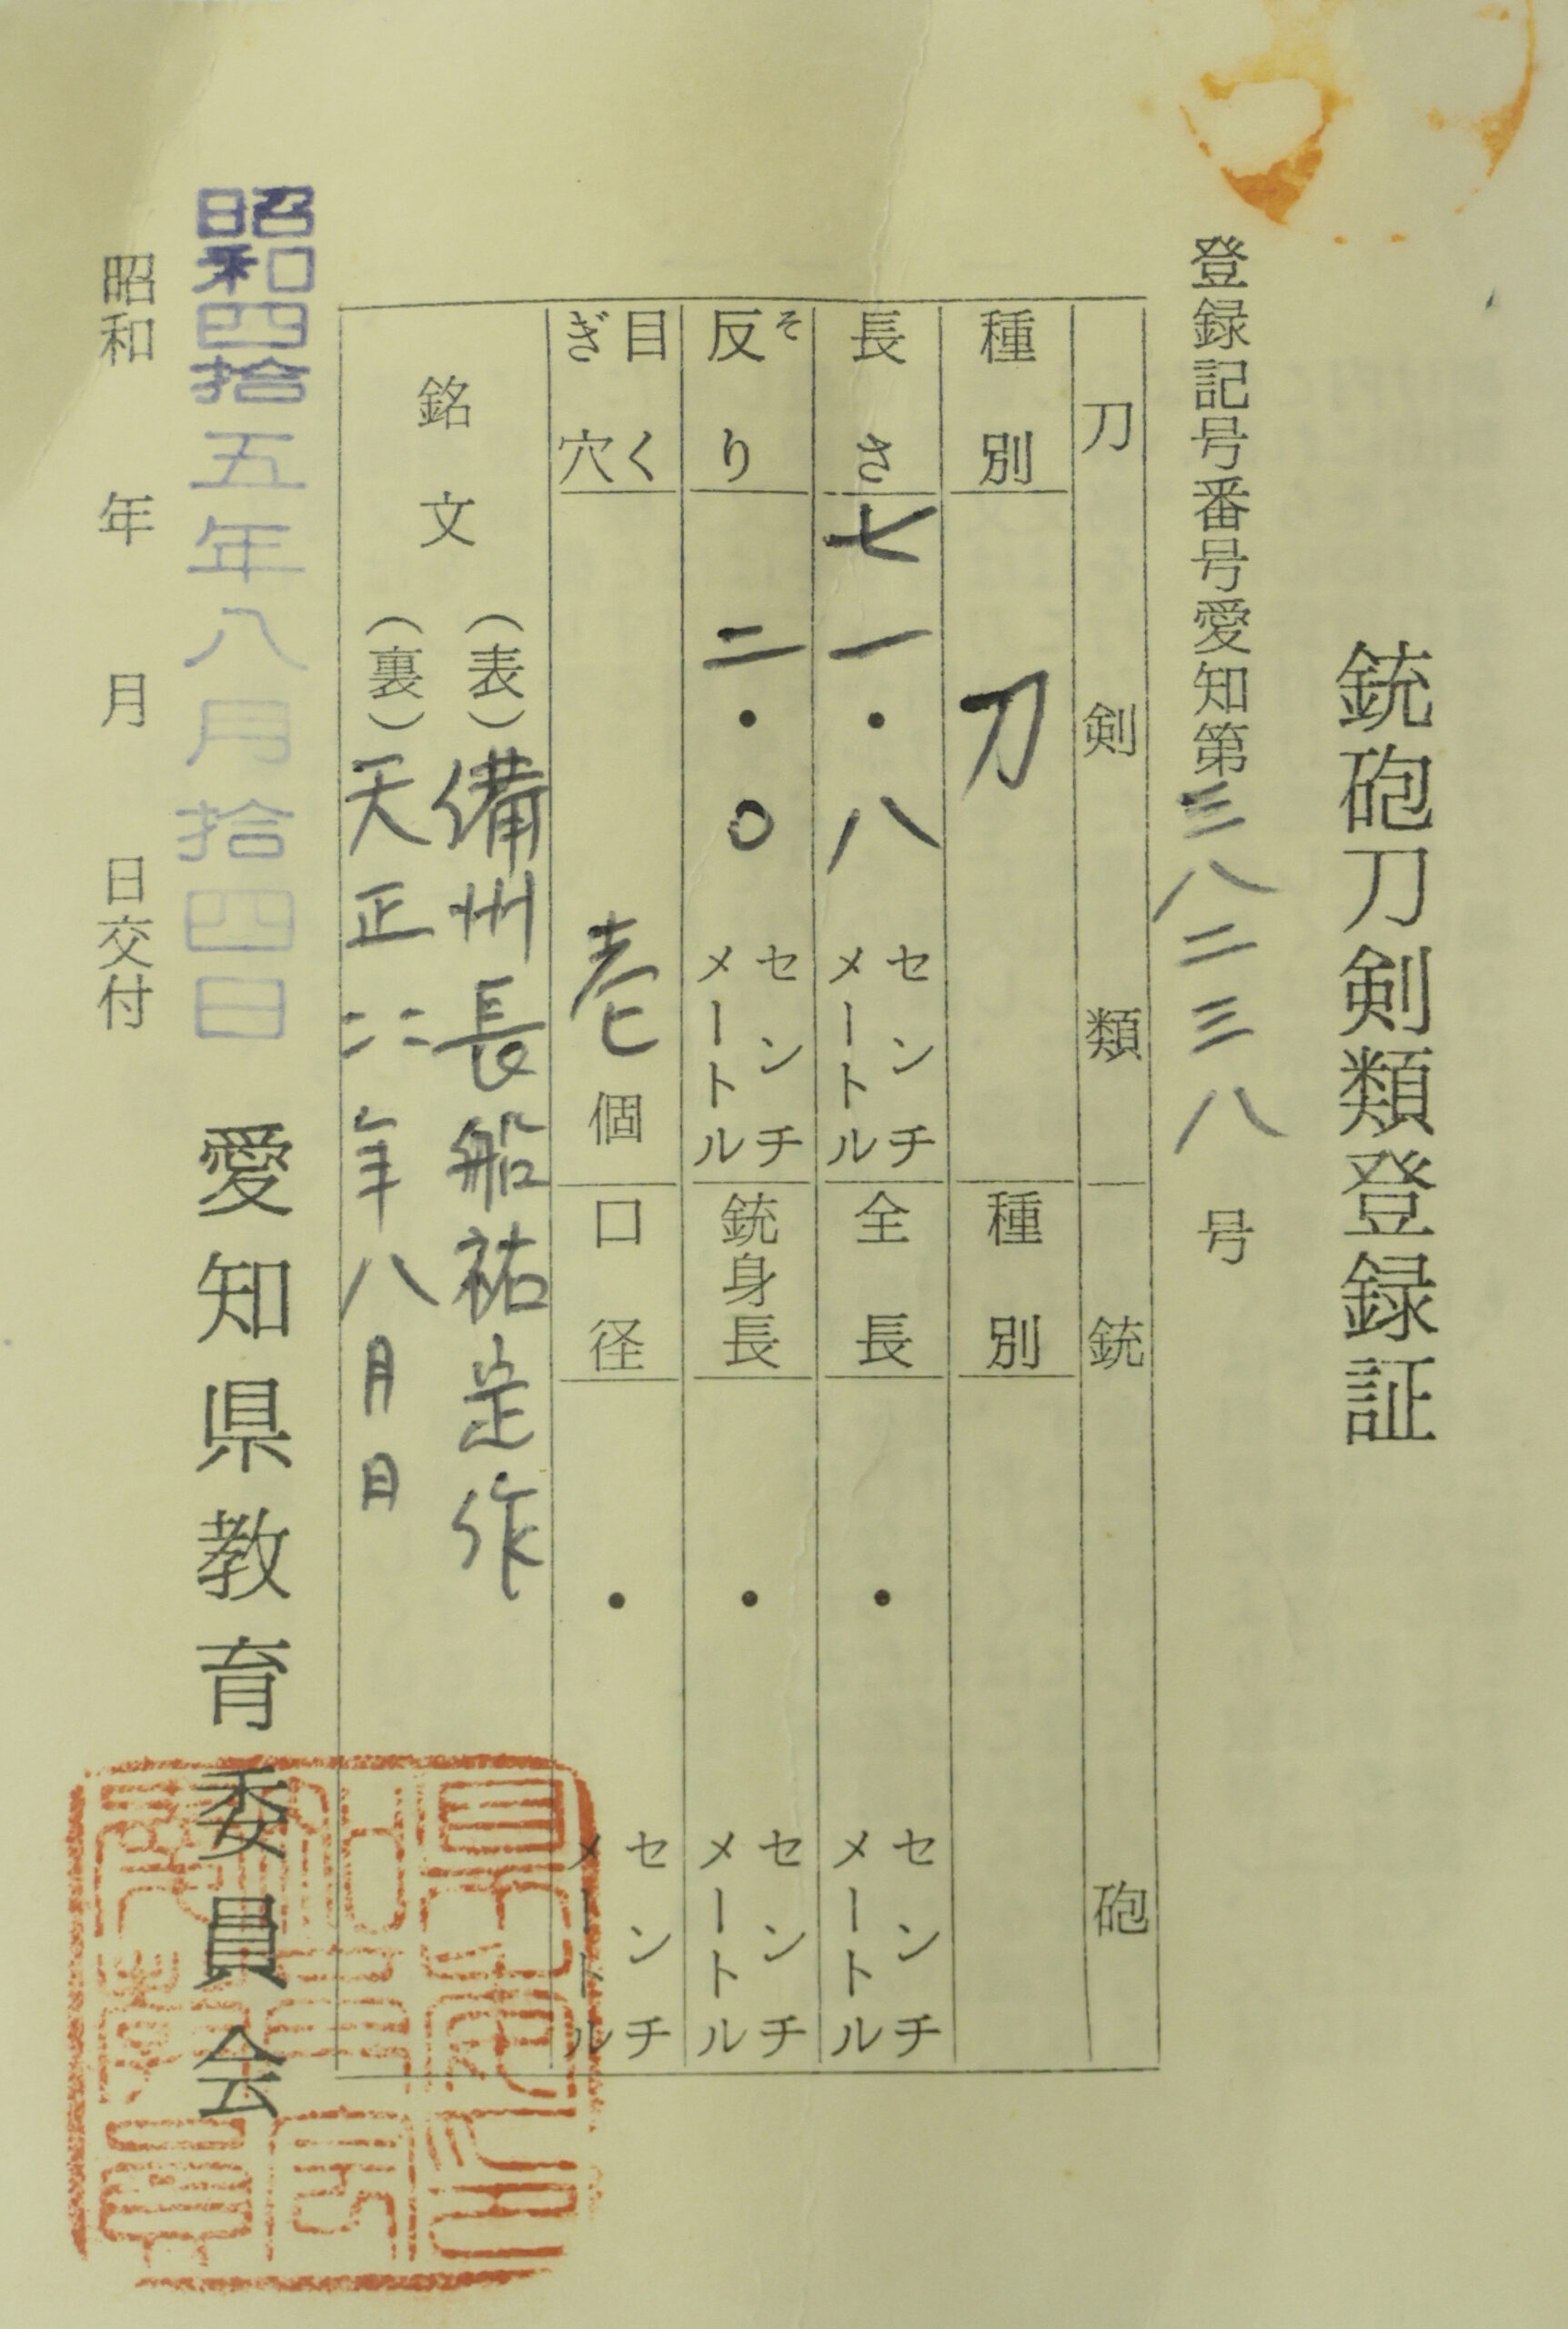 銃砲刀剣類登録証
登録記号番号愛知第三八二三八号
刀剣類
種別 刀
長さ 七一・八 センチメートル
反り 二・〇 センチメートル
そ
目くぎ穴 壱個
銃砲
種別
全長 ・ センチメートル
銃身長 ・ センチメートル
口径 ・ センチメートル
銘文
(表)備州長船祐定作
(裏)天正二二年八月日
昭和四拾五年八月拾四日
愛知県教育委員会
昭和 年 月 日交付